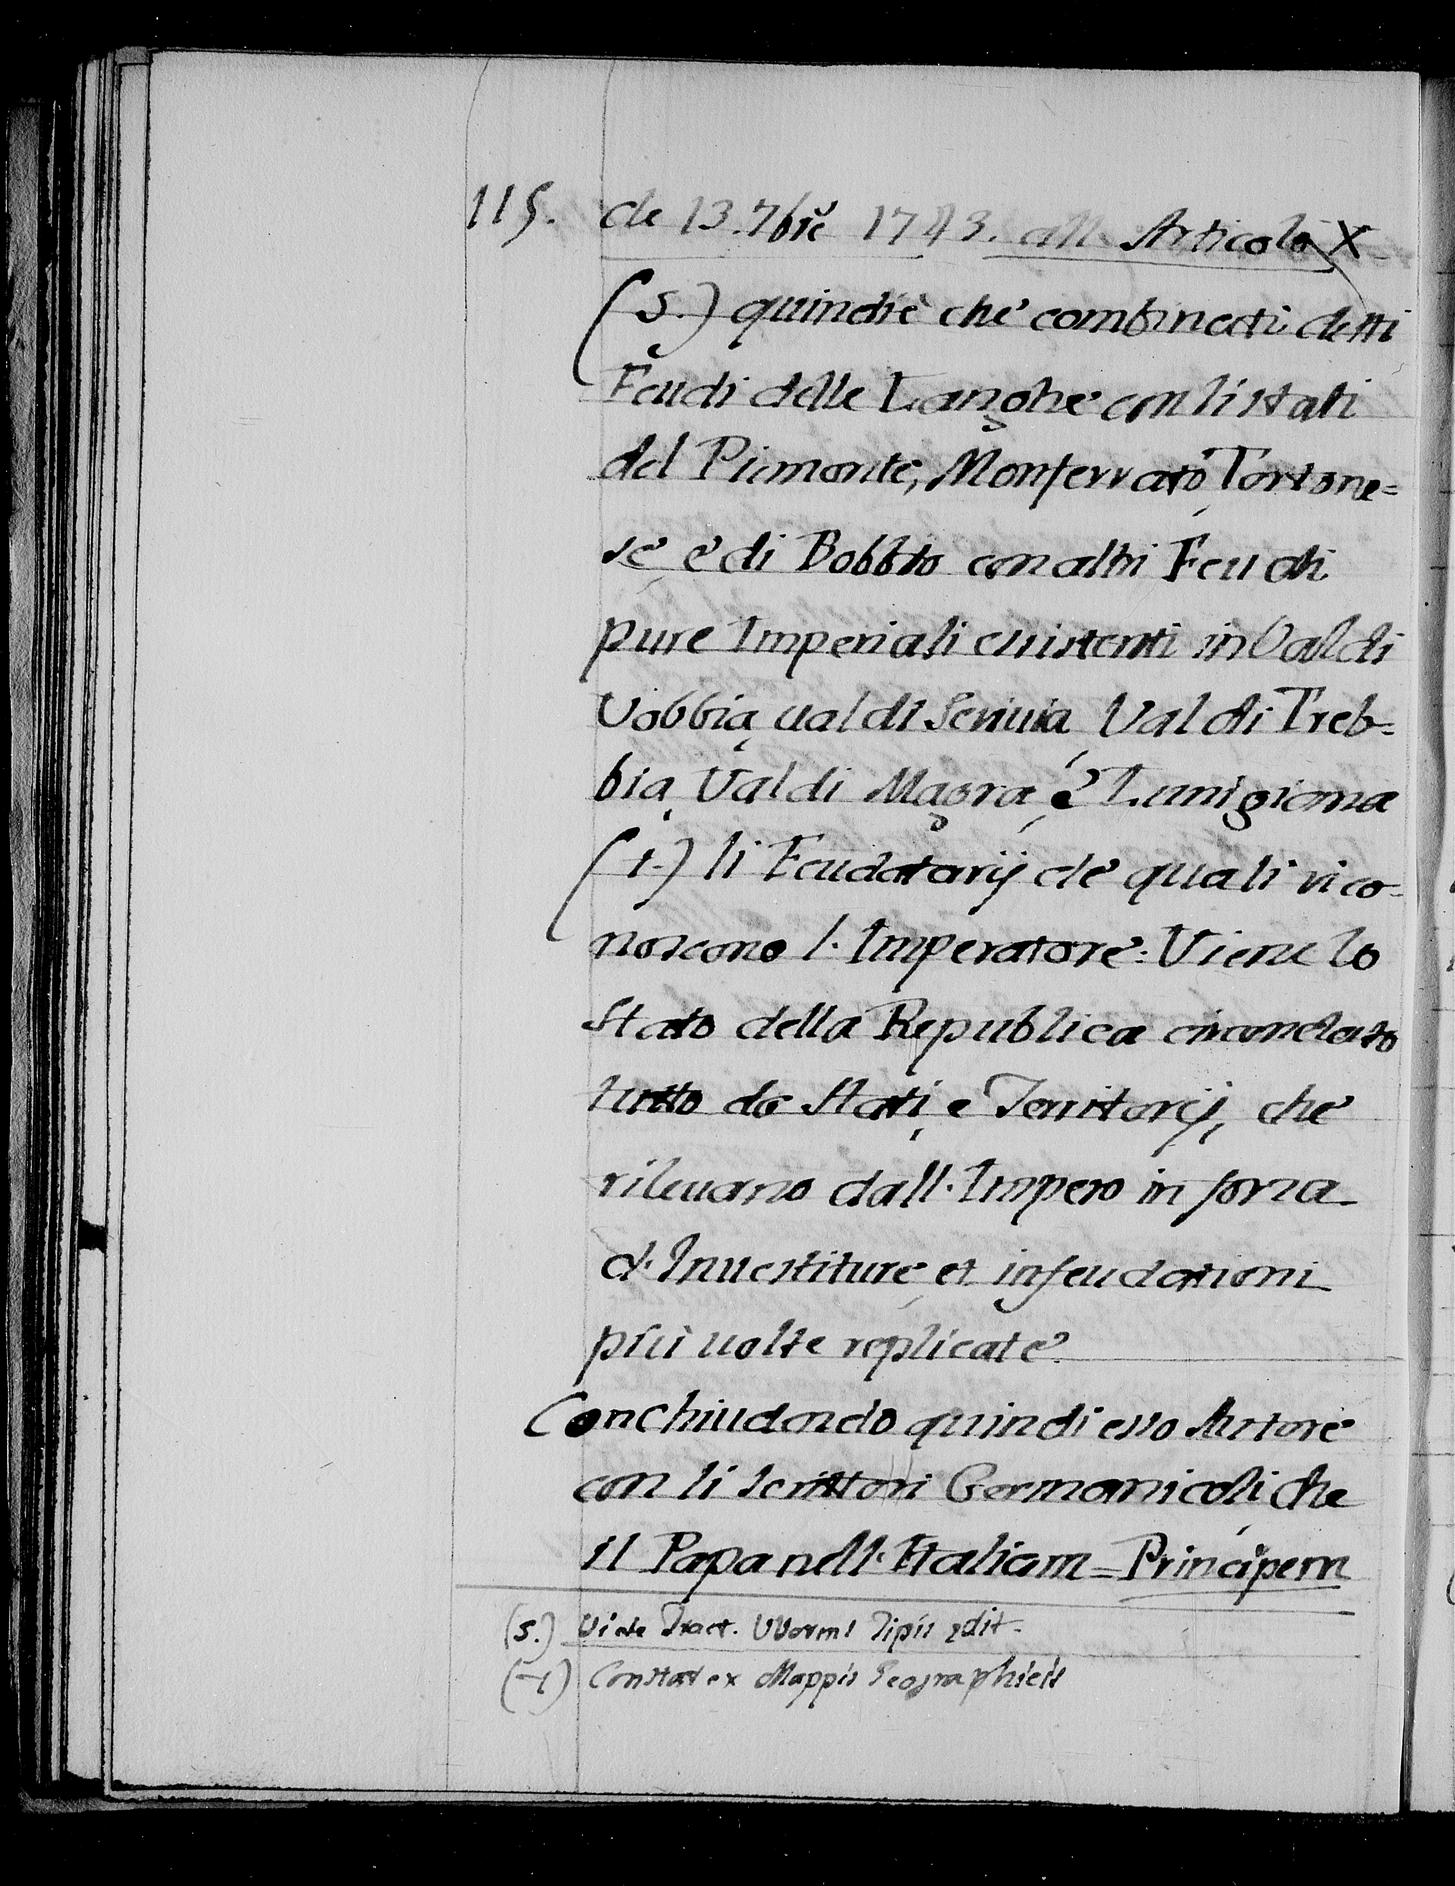 115. de 13. 7bre 1743. all Articolo X
(s.) quindi è che combinati detti
Feudi delle Langhe con li stati
del Piemonte, Monferrato, Tortone=
se e di Bobbio con altri Feudi
pure Imperiali esistenti in Val di
Vobbia, val di Scrivia Val di Treb=
bia, Val di Magra, e Lunigiana
(t.) li Feudatarij de quali rico=
noscono l. Imperatore: Viene lo
Stato della Republica circondato
tutto da Stati, e Territorij, che
rilevano dall. Impero in forza
d. Investiture, et infeudationi
più volte replicate.
Conchiudendo quindi esso Autore
con li scrittori Germanicoli, che
il Papa nell. Italiam = Principem
(s.) Vide Tract. VVorms Tipis edit.
(t) Constat ex Mappis Geographicis